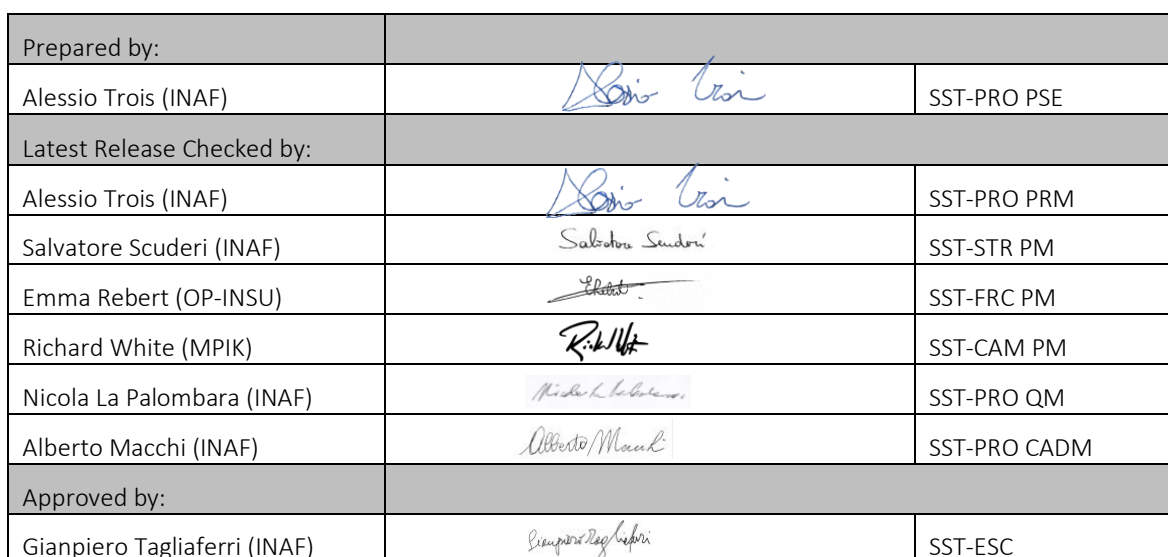 Prepared by:
Alessio Trois (INAF) Alessio Trois SST-PRO PSE
Latest Release Checked by:
Alessio Trois (INAF) Alessio Trois SST-PRO PRM
Salvatore Scuderi (INAF) Salvatore Scuderi SST-STR PM
Emma Rebert (OP-INSU) SST-FRC PM
Richard White (MPIK) SST-CAM PM
Nicola La Palombara (INAF) SST-PRO QM
Alberto Macchi (INAF) Alberto Macchi SST-PRO CADM
Approved by:
Gianpiero Tagliaferri (INAF) Gianpiero Tagliaferri SST-ESC